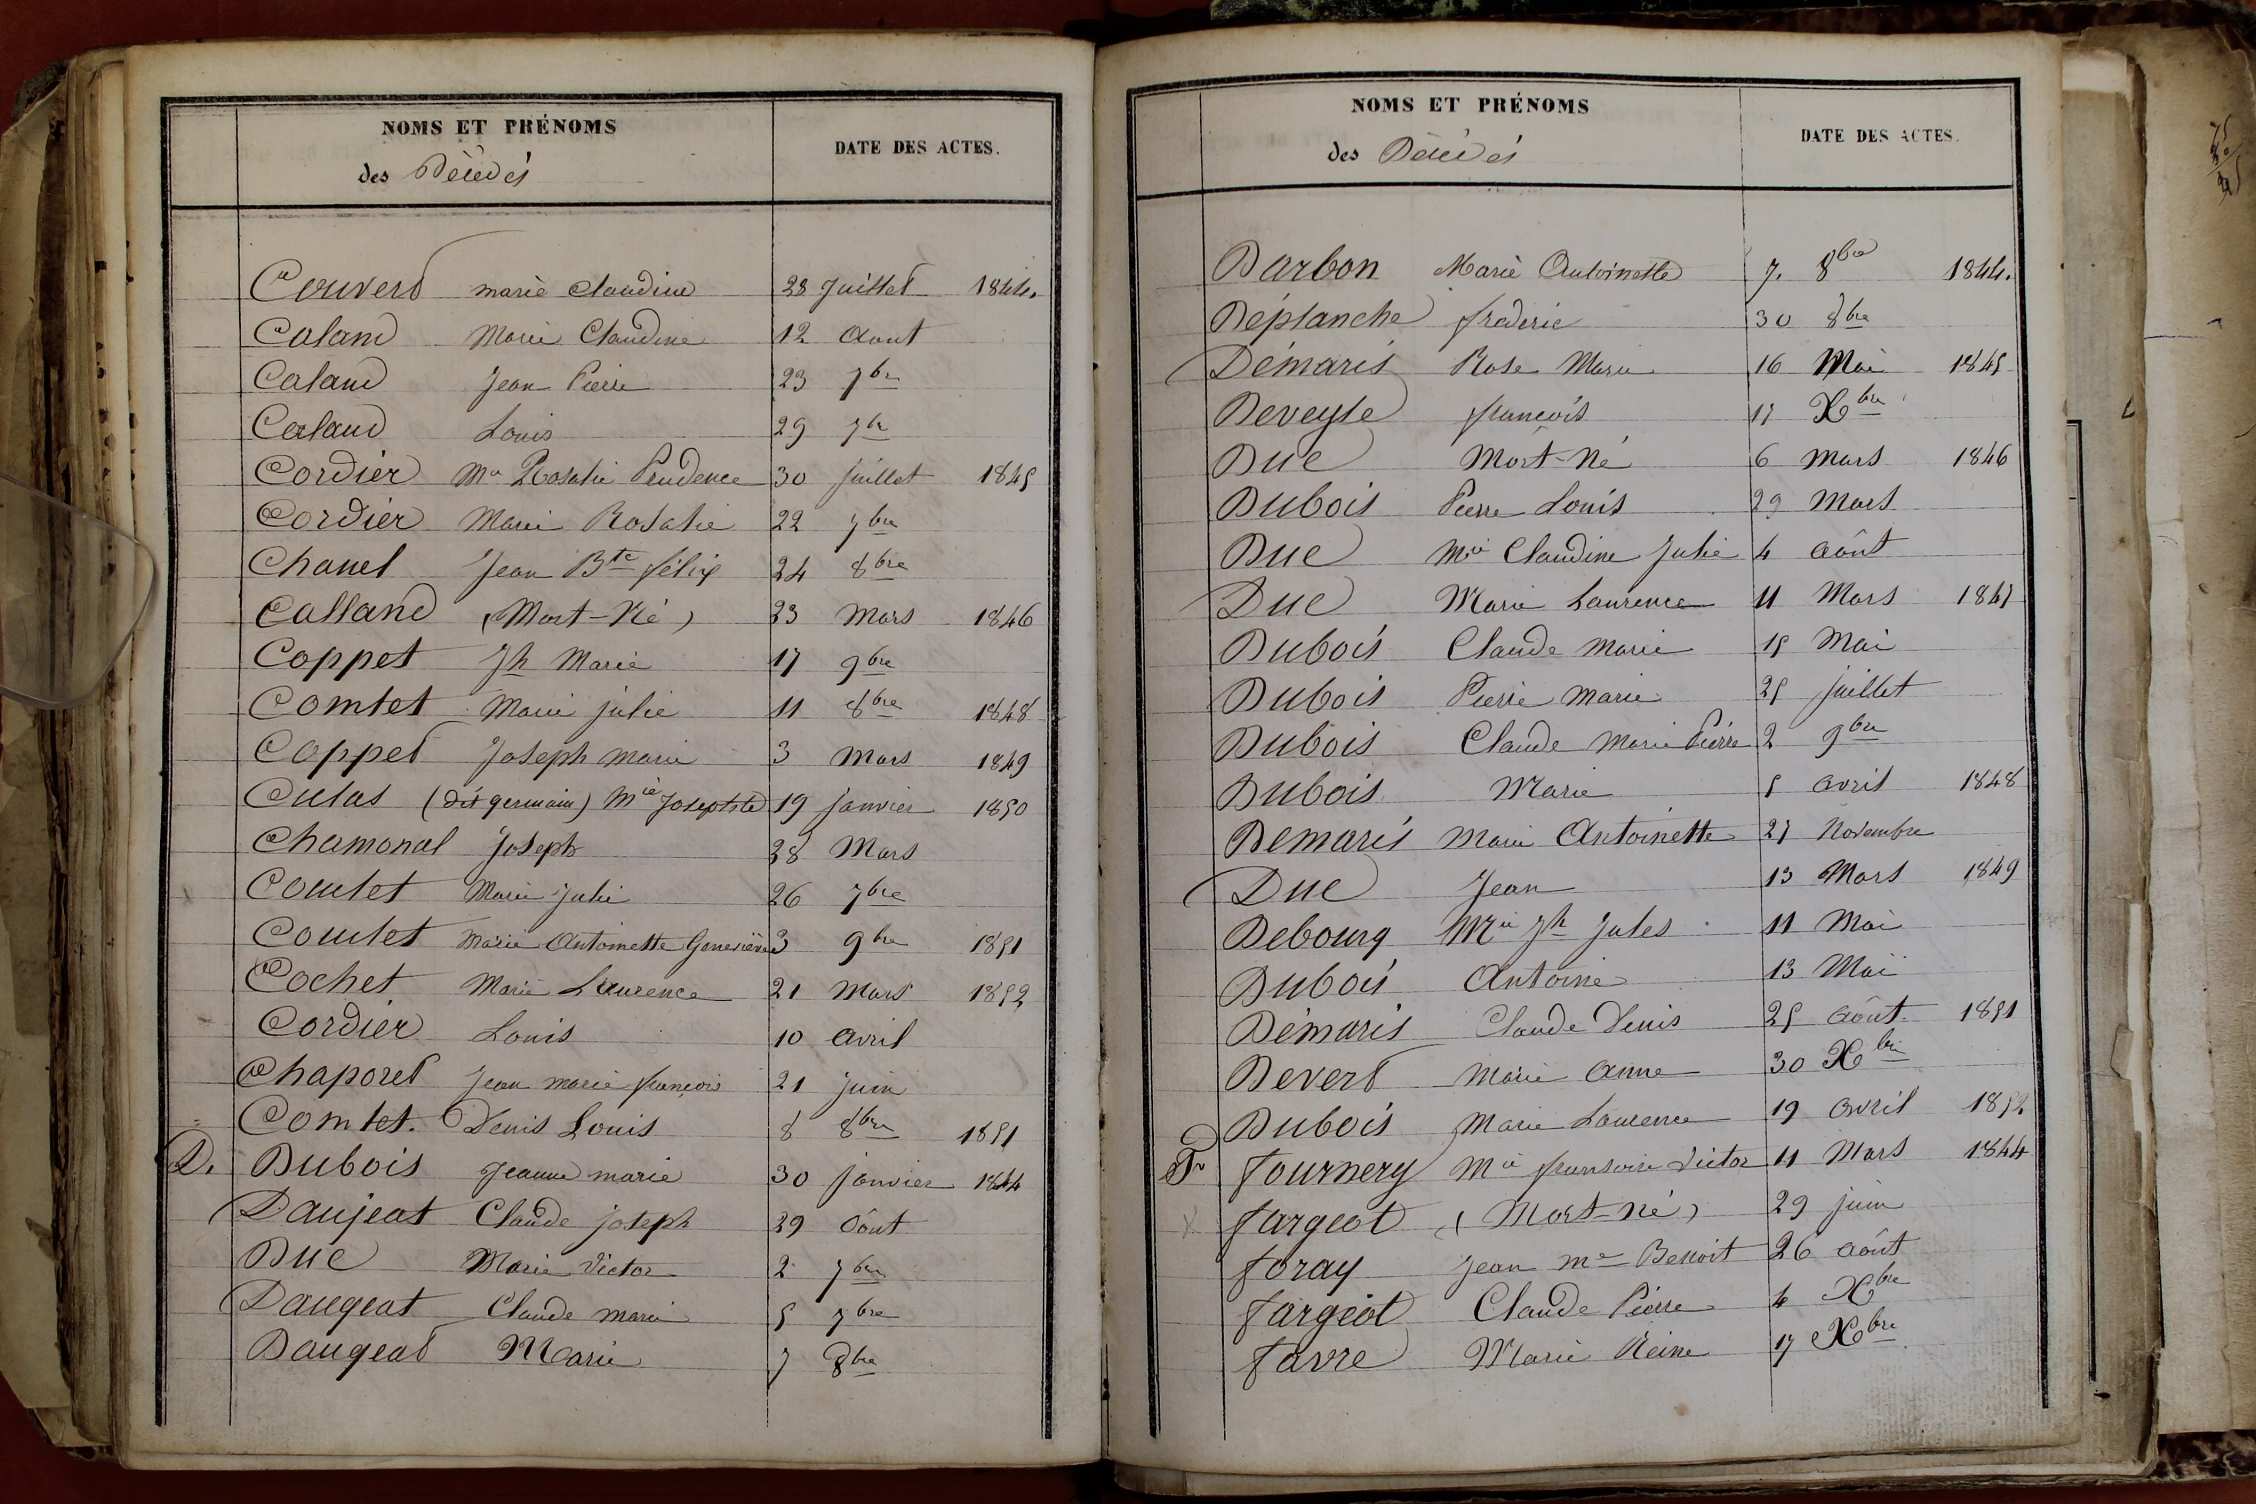 NOMS ET PRÉNOMS
des Décédés
DATE DES ACTES.
Couvert marie Claudine 28 Juillet 1844.
Caland Marie Claudine 12 Aout
Caland Jean Pierre 23 7bre
Caland Louis 29 7bre
Cordier Mie Rosalie Prudence 30 Juillet 1845
Cordier Marie Rosalie 22 7bre
Chanel Jean Bte félix 24 8bre
Calland (Mort-Né) 23 Mars 1846
Coppet Jh Marie 17 9bre
Comtet Marie julie 11 8bre 1848
Coppet Joseph marie 3 Mars 1849
Culas (dit germain) Mie Josephte 19 janvier 1850
Chamonal Joseph 28 Mars
Comtet Marie Julie 26 7bre
Comtet Marie Antoinette Geneviève 3 9bre 1851
Cochet Marie Laurence 21 Mars 1852
Cordier Louis 10 avril
Chaporet Jean marie françois 21 juin
Comtet. Denis Louis 8 8bre 1851
D. Dubois Jeanne marie 30 janvier 1844
Daujeat Claude joseph 29 Oôut
Duc Marie Victor 2 7bre
Daugeat Claude marie 5 7bre
Daugeat Marie 7 8bre
NOMS ET PRÉNOMS
des Décédés
DATE DES ACTES.
Darbon Marie Antoinette 7. 8bre 1844.
Déplanche frederic 30 8bre
Démaris Rose Marie 16 Mai 1845
Deveyle françois 17 Xbre
Duc Mort-Né 6 mars 1846
Dubois Pierre Louis 29 Mars
Duc Mie Claudine Julie 4 août
Duc Marie Laurence 11 Mars 1847
Dubois Claude Marie 15 Mai
Dubois Pierre Marie 25 juillet
Dubois Claude Marie Pierre 2 9bre
Dubois Marie 5 avril 1848
Demaris Marie Antoinette 27 Novembre
Duc Jean 13 Mars 1849
Debourg Mie Jh Jules 11 Mai
Dubois Antoine 13 Mai
Démaris Claude Denis 25 août. 1851
Devert Marie Anne 30 Xbre
Dubois Marie Laurence 19 avril 1852
F fournery Mie fransoise Victor 11 Mars 1844
fargeot (Mort-né) 29 juin
foray Jean me Benoit 26 août
fargeot Claude Pierre 4 Xbre
favre Marie Reine 17 Xbre